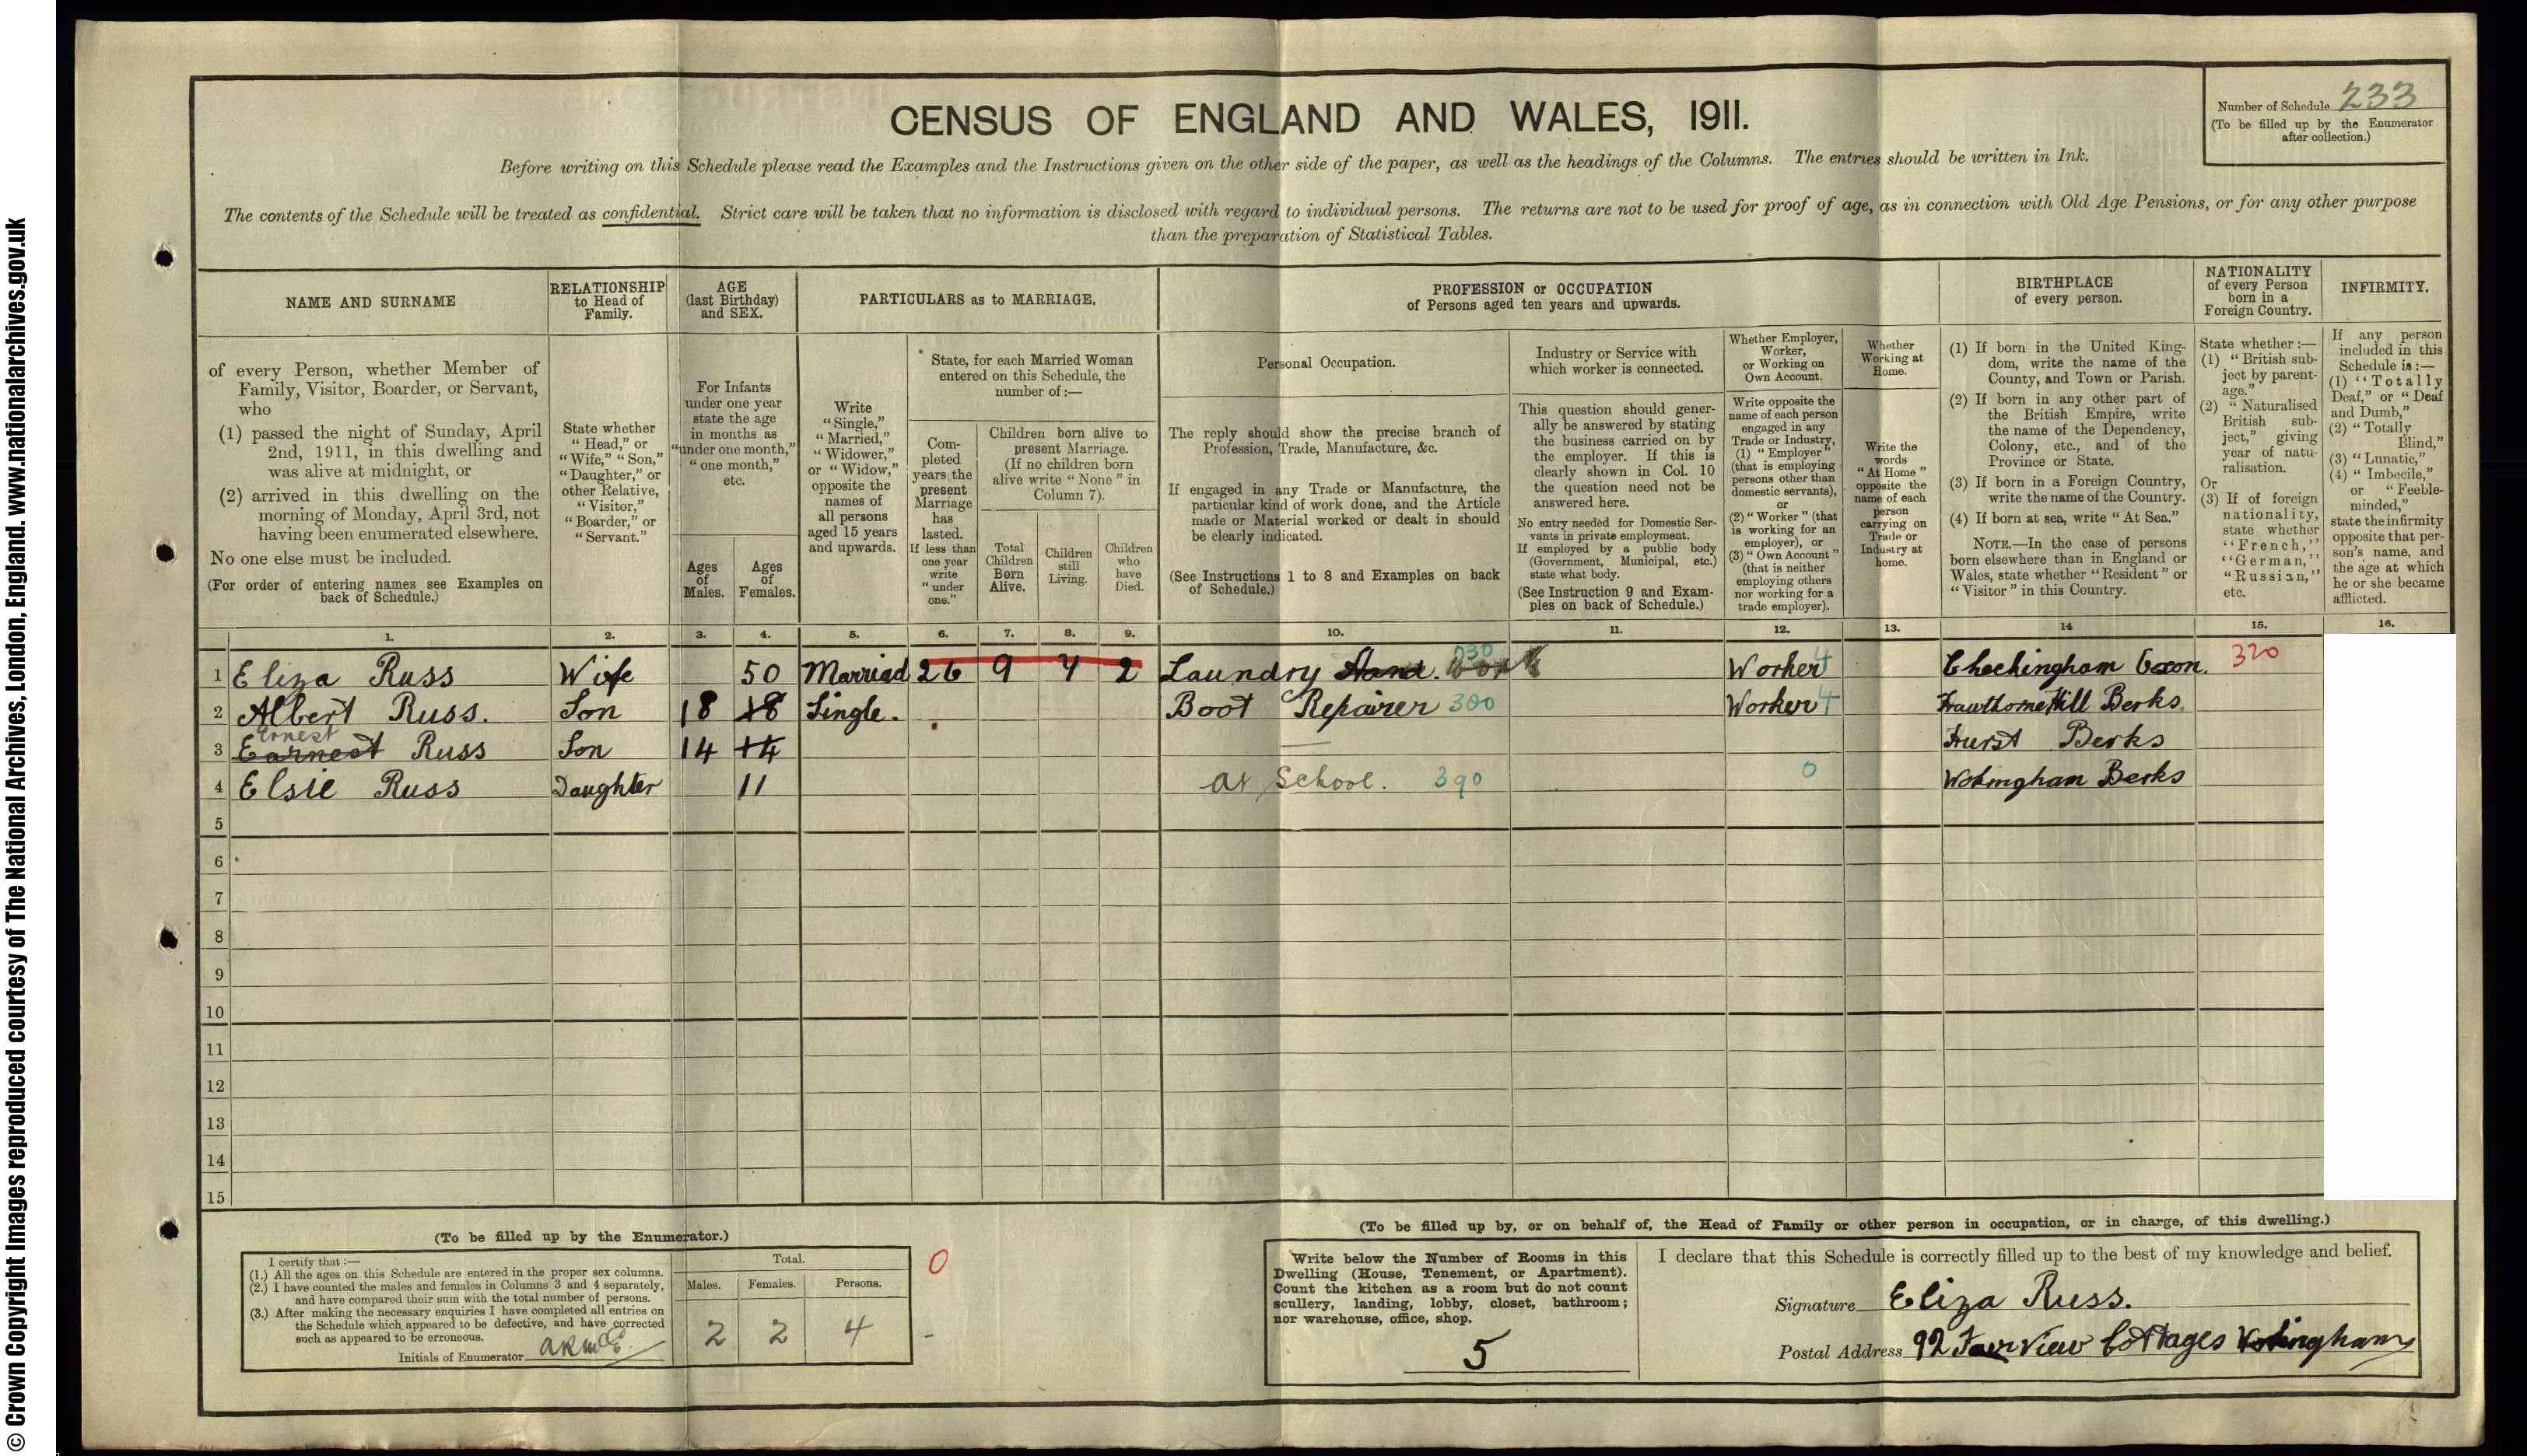 © Crown Copyright Images reproduced courtesy of The National Archives, London, England. www.nationalarchives.gov.uk
CENSUS OF ENGLAND AND WALES, 1911.
Number of Schedule 233
(To be filled up by the Enumerator
after collection.)
Before writing on this Schedule please read the Examples and the Instructions given on the other side of the paper, as well as the headings of the Columns. The entries should be written in Ink.
The contents of the Schedule will be treated as confidential. Strict care will be taken that no information is disclosed with regard to individual persons. The returns are not to be used for proof of age, as in connection with Old Age Pensions, or for any other purpose
than the preparation of Statistical Tables.
NAME AND SURNAME
of every Person, whether Member of
Family, Visitor, Boarder, or Servant,
who
(1) passed the night of Sunday, April
2nd, 1911, in this dwelling and
was alive at midnight, or
(2) arrived in this dwelling on the
morning of Monday, April 3rd, not
having been enumerated elsewhere.
No one else must be included.
(For order of entering names see Examples on
back of Schedule.)
RELATIONSHIP
to Head of
Family.
State whether
"Head," or
"Wife," "Son,"
"Daughter," or
other Relative,
"Visitor,"
"Boarder," or
"Servant."
AGE
(last Birthday)
and SEX.
For Infants
under one year
state the age
in months as
"under one month,"
"one month,"
etc.
Ages
of
Males.
Ages
of
Females.
PARTICULARS as to MARRIAGE.
Write
"Single,"
"Married,"
"Widower,"
or "Widow,"
opposite the
names of
all persons
aged 15 years
and upwards.
State, for each Married Woman
entered on this Schedule, the
number of :—
Com-
pleted
years the
present
Marriage
has
lasted.
If less than
one year
write
"under
one."
Children born alive to
present Marriage.
(If no children born
alive write "None" in
Column 7).
Total
Children
Born
Alive.
Children
still
Living.
Children
who
have
Died.
PROFESSION or OCCUPATION
of Persons aged ten years and upwards.
Personal Occupation.
The reply should show the precise branch of
Profession, Trade, Manufacture, &c.
If engaged in any Trade or Manufacture, the
particular kind of work done, and the Article
made or Material worked or dealt in should
be clearly indicated.
(See Instructions 1 to 8 and Examples on back
of Schedule.)
Industry or Service with
which worker is connected.
This question should gener-
ally be answered by stating
the business carried on by
the employer. If this is
clearly shown in Col. 10
the question need not be
answered here.
No entry needed for Domestic Ser-
vants in private employment.
If employed by a public body
(Government, Municipal, etc.)
state what body.
(See Instruction 9 and Exam-
ples on back of Schedule.)
Whether Employer,
Worker,
or Working on
Own Account.
Write opposite the
name of each person
engaged in any
Trade or Industry,
(1) "Employer"
(that is employing
persons other than
domestic servants),
or
(2) "Worker" (that
is working for an
employer), or
(3) "Own Account"
(that is neither
employing others
nor working for a
trade employer).
Whether
Working at
Home.
Write the
words
"At Home"
opposite the
name of each
person
carrying on
Trade or
Industry at
home.
BIRTHPLACE
of every person.
(1) If born in the United King-
dom, write the name of the
County, and Town or Parish.
(2) If born in any other part of
the British Empire, write
the name of the Dependency,
Colony, etc., and of the
Province or State.
(3) If born in a Foreign Country,
write the name of the Country.
(4) If born at sea, write "At Sea."
NOTE.—In the case of persons
born elsewhere than in England or
Wales, state whether "Resident" or
"Visitor" in this Country.
NATIONALITY
of every Person
born in a
Foreign Country.
State whether :—
(1) "British sub-
ject by parent-
age."
(2) "Naturalised
British sub-
ject," giving
year of natu-
ralisation.
Or
(3) If of foreign
nationality,
state whether
"French,"
"German,"
"Russian,"
etc.
INFIRMITY.
If any person
included in this
Schedule is :—
(1) "Totally
Deaf," or "Deaf
and Dumb,"
(2) "Totally
Blind,"
(3) "Lunatic,"
(4) "Imbecile,"
or "Feeble-
minded,"
state the infirmity
opposite that per-
son's name, and
the age at which
he or she became
afflicted.
1. 2. 3. 4. 5. 6. 7. 8. 9. 10. 11. 12. 13. 14 15. 16.
1 Eliza Russ Wife 50 Married 26 9 7 2 Laundry Hand. 030 Worker 4 Checkingham Oxon. 320
2 Albert Russ. Son 18 18 Single. Boot Repairer 380 Worker 4 Hawthorne Hill Berks.
Ernest
3 Earnest Russ Son 14 14 — Hurst Berks
4 Elsie Russ Daughter 11 at School. 390 0 Wokingham Berks
5
6
7
8
9
10
11
12
13
14
15
(To be filled up by the Enumerator.)
I certify that :—
(1.) All the ages on this Schedule are entered in the proper sex columns.
(2.) I have counted the males and females in Columns 3 and 4 separately,
and have compared their sum with the total number of persons.
(3.) After making the necessary enquiries I have completed all entries on
the Schedule which appeared to be defective, and have corrected
such as appeared to be erroneous.
Initials of Enumerator
Total.
Males. Females. Persons.
2 2 4
0
(To be filled up by, or on behalf of, the Head of Family or other person in occupation, or in charge, of this dwelling.)
Write below the Number of Rooms in this
Dwelling (House, Tenement, or Apartment).
Count the kitchen as a room but do not count
scullery, landing, lobby, closet, bathroom;
nor warehouse, office, shop.
5
I declare that this Schedule is correctly filled up to the best of my knowledge and belief.
Signature Eliza Russ.
Postal Address 92 Fair View Cottages Wokingham